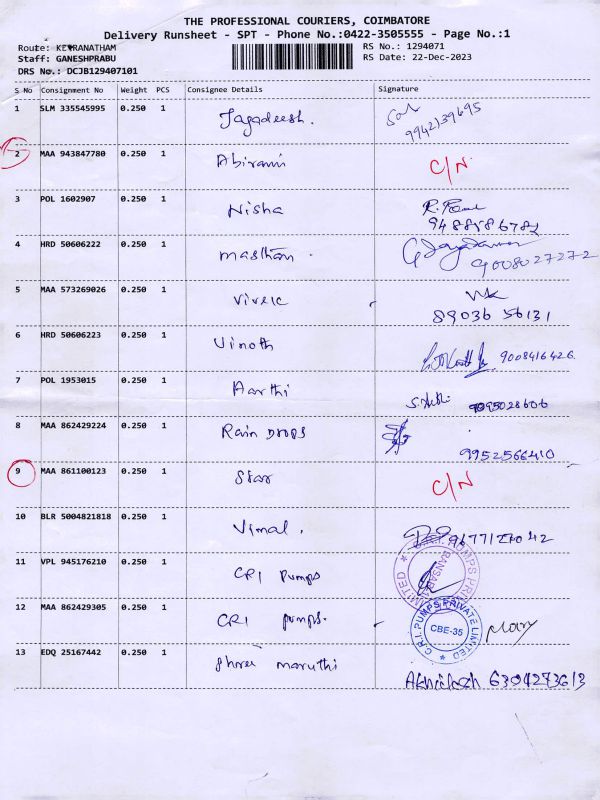 THE PROFESSIONAL COURIERS, COIMBATORE
Delivery Runsheet - SPT - Phone No.:0422-3505555 - Page No.:1
Route: KEERANATHAM RS No.: 1294071
Staff: GANESHPRABU RS Date: 22-Dec-2023
DRS No.: DCJB129407101
S No Consignment No Weight PCS Consignee Details Signature
1 SLM 335545995 0.250 1 Jagadeesh.
9942139695
2 MAA 943847780 0.250 1 Abirami C/N
3 POL 1602907 0.250 1 Nisha
4 HRD 50606222 0.250 1 masthan.
9008027272
5 MAA 573269026 0.250 1 Vivek
89036 56131
6 HRD 50606223 0.250 1 Vinoth
9008416426
7 POL 1953015 0.250 1 Aarthi
8 MAA 862429224 0.250 1 Rain Drops
9952566410
9 MAA 861100123 0.250 1 Star C/N
10 BLR 5004821818 0.250 1 Vimal.
11 VPL 945176210 0.250 1 CRI Pumps
12 MAA 862429305 0.250 1 CRI pumps.
C.R.I. PUMPS PRIVATE LIMITED
CBE-35
Mary
13 EDQ 25167442 0.250 1 Shree maruthi
6304273613